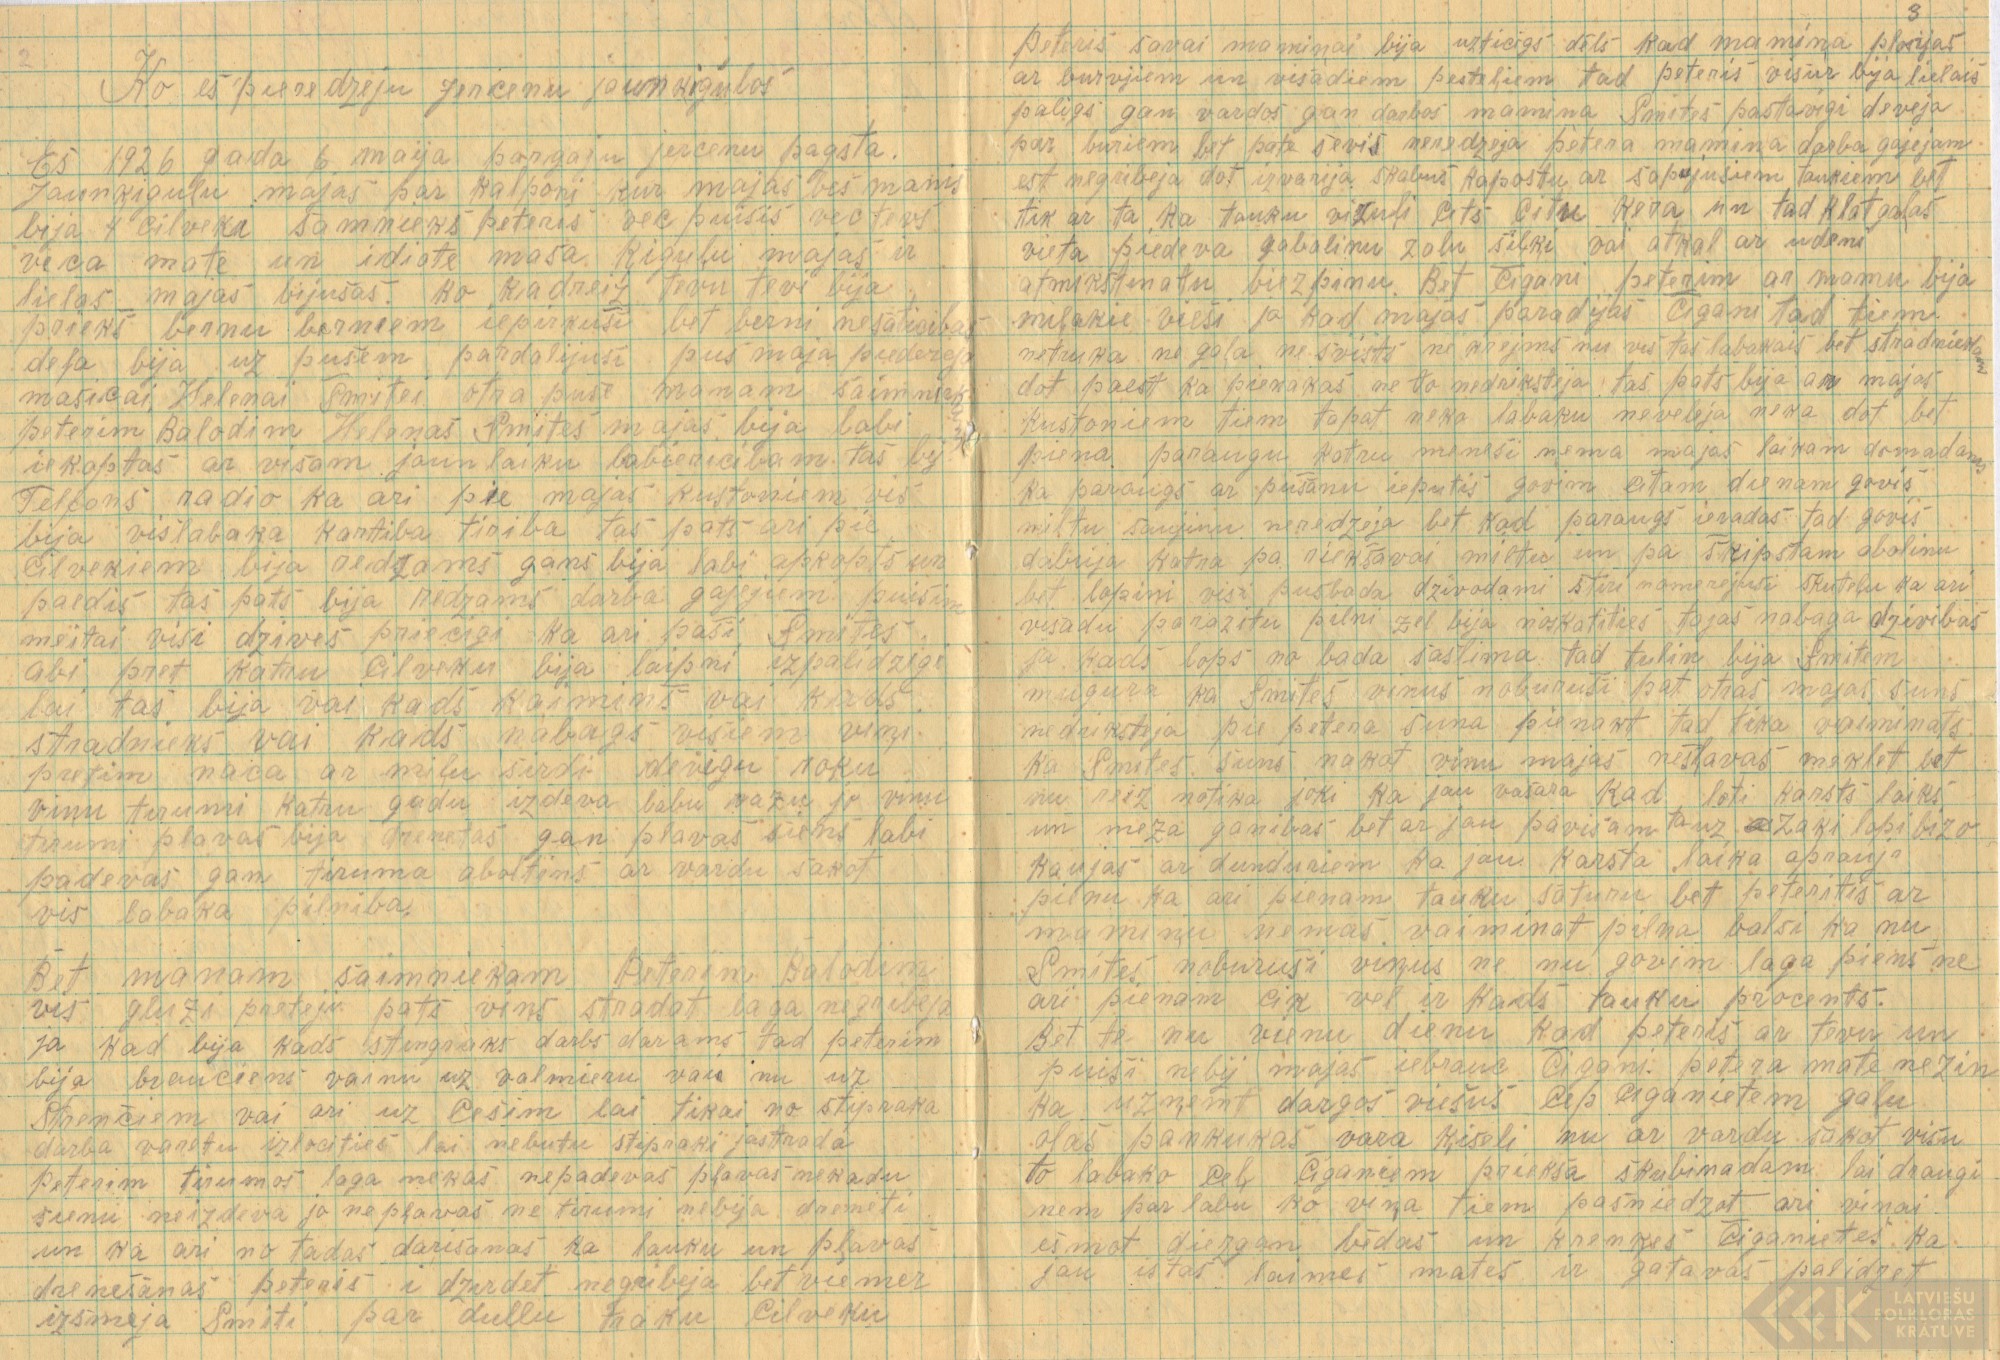 2
Ko es pieredzeju jercenu jaunkiguļos
Es 1926 gada 6 maija pargaju jercenu pagsta.
Jaunkiguļu majas par kalponi kur majas bes manis
bija 4 cilveki saimnieks peteris vec puisis vectevs
veca mate un idiote masa. Kiguļu majas ir
lielas majas bijušas. ko kadreiz tevu tevi bija
prieks bernu berniem iepirkuši bet berni nesaticibas
deļa bija uz pusem pardalijuši pus maja piedereja
masicai Helenai Smitei otra puse manam saimniekam
peterim Balodim Helenas Smites majas bija labi
iekoptas ar visam jaunlaiku labiericibam tas bij
Telfons radio ka ari pie majas kustoniem vis
bija vislabaka kartiba tiriba tas pats ari pie
Cilvekiem bija redzams gans bija labi apkopts un
paedis tas pats bija redzams darba gajejiem puisim
meitai visi dzives priecigi ka ari paši Smites.
abi pret katru Cilveku bija laipni izpalidzigi
lai tas bija vai kads kaimiņš vai kads.
stradnieks vai kads nabags visiem viņi.
pretim naca ar milu sirdi devigu roku
viņu tirumi katru gadu izdeva labu ražu jo viņu
tirumi plavas bija drenetas gan plavas siens labi
padevas gan tiruma aboliņš ar vardu sakot
vis labaka pilniba.
Bet manam saimniekam Peterim Balodim
vis gluži preteju pats viņš stradat laga negribeja
ja kad bija kads stingraks darbs darams tad peterim
bija brauciens vainu uz valmieru vai nu uz
Strenčiem vai ari uz Cesim lai tikai no stipraka
darba varetu izlocities lai nebutu stipraki jastrada
Peterim tirumos laga nekas nepadevas plavas nekadu
sienu neizdeva jo neplavas ne tirumi nebija dreneti
un ka ari no tadas darišanas ka lauku un plavas
drenešanas peteris i dzirdet negribeja bet vienmer
izsmeja Smiti par dullu traku Cilveku
3
Peteris savai mamiņai bija uzticigs dēls kad mamina plosijas
ar burvjiem un visadiem pesteļiem tad peteris visur bija lielais
paligs gan vardos gan darbos mamina Smites pastavigi deveja
par buriem bet pate sevis neredzeja petera mamina darba gajejam
est negribeja dot izvarija skabus kapostu ar sapujušiem taukiem bet
tik ar ta ka tauku vizuļi cits Citu kera un tad klat gaļas
vieta piedeva gabaliņu zaļu siļki vai atkal ar udeni
atmikstinatu biezpinu. Bet Cigani peterim ar mamu bija
miļakie viesi ja kad majas paradijas Cigani tad tiem
netruka ne gaļa ne svists ne krejms nu vis tas labakais bet stradniekam
dot paest ka pienakas ne to nedriksteja tas pats bija ar majas
kustoniem tiem tapat neka labaku neveleja neka dot bet
piena paraugu katru menesi nema majas laikam domadams
ka paraugs ar pušanu ieputis govim Citam dienam govis
miltu saujinu neredzeja bet kad paraugs ieradas tad govis
dabuja katra pa riekšavai miltu un pa škipstam abolinu
bet lopini visi pusbada dzivodami stiri nomerejuši skuteļu ka ari
visadu parazitu pilni žel bija noskatities tajas nabaga dzivibas
ja kads lops no bada saslima tad tulin bija Smitem
mugura ka Smites vinus noburuši pat otras majas suns
nedriksteja pie petera suna pienakt tad tika vaiminats
ka Smites suns nakot viņu majas neslavas meklet bet
nu reiz notika joki ka jau vasara kad loti karsts laiks
un meža ganibas bet ar jau pavisam tauz zaki lopi bizo
kaujas ar dunduriem ka jau karsta laika aprauj
pilnu ka ari pienam tauku saturu bet peteritis ar
maminu nemas vaiminat pilna balsi ka nu
Smites noburuši viņus ne nu govim laga piens ne
ari pienam cik vel ir kads tauku procents.
Bet te nu vienu dienu kad peteris ar tevu un
puisi nebij majas iebrauc Cigani petera mate nezin
ka uzņemt dargos viesus Cep Ciganietem gaļu
olas pankukas vara kiseli nu ar vardu sakot visu
to labako Ceļ Ciganiem prieksa skubinadam lai draugi
nem par labu ko viņa tiem pasniedzot ari vinai
esmot diezgan bēdas un krenkes Ciganietes ka
jau istas laimes mates ir gatavas palidzet
LATVIEŠU
FOLKLORAS
KRĀTUVE